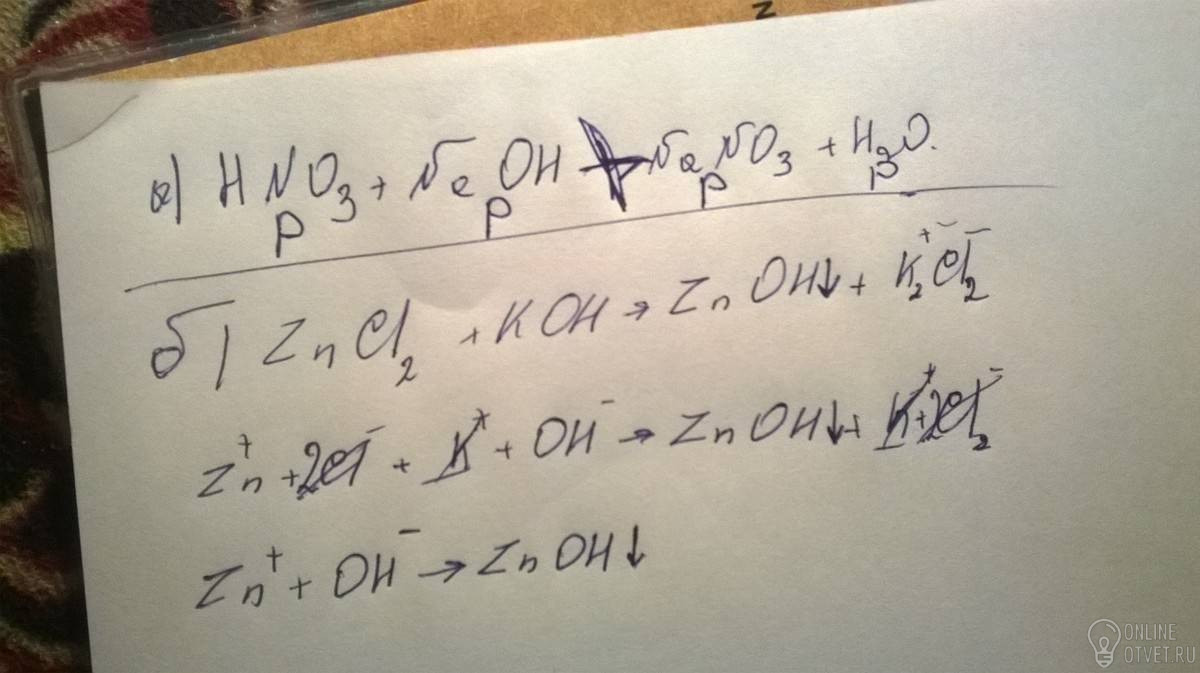 z
а) HNO₃ + NaOH ↛ NaNO₃ + H₂O.
р р р р
б) ZnCl₂ + KOH → ZnOH↓ + K₂⁺Cl₂⁻
Zn⁺ + 2Cl⁻ + K⁺ + OH⁻ → ZnOH↓ + K⁺ + 2Cl₂⁻
Zn⁺ + OH⁻ → ZnOH↓
ONLINE
OTVET.RU